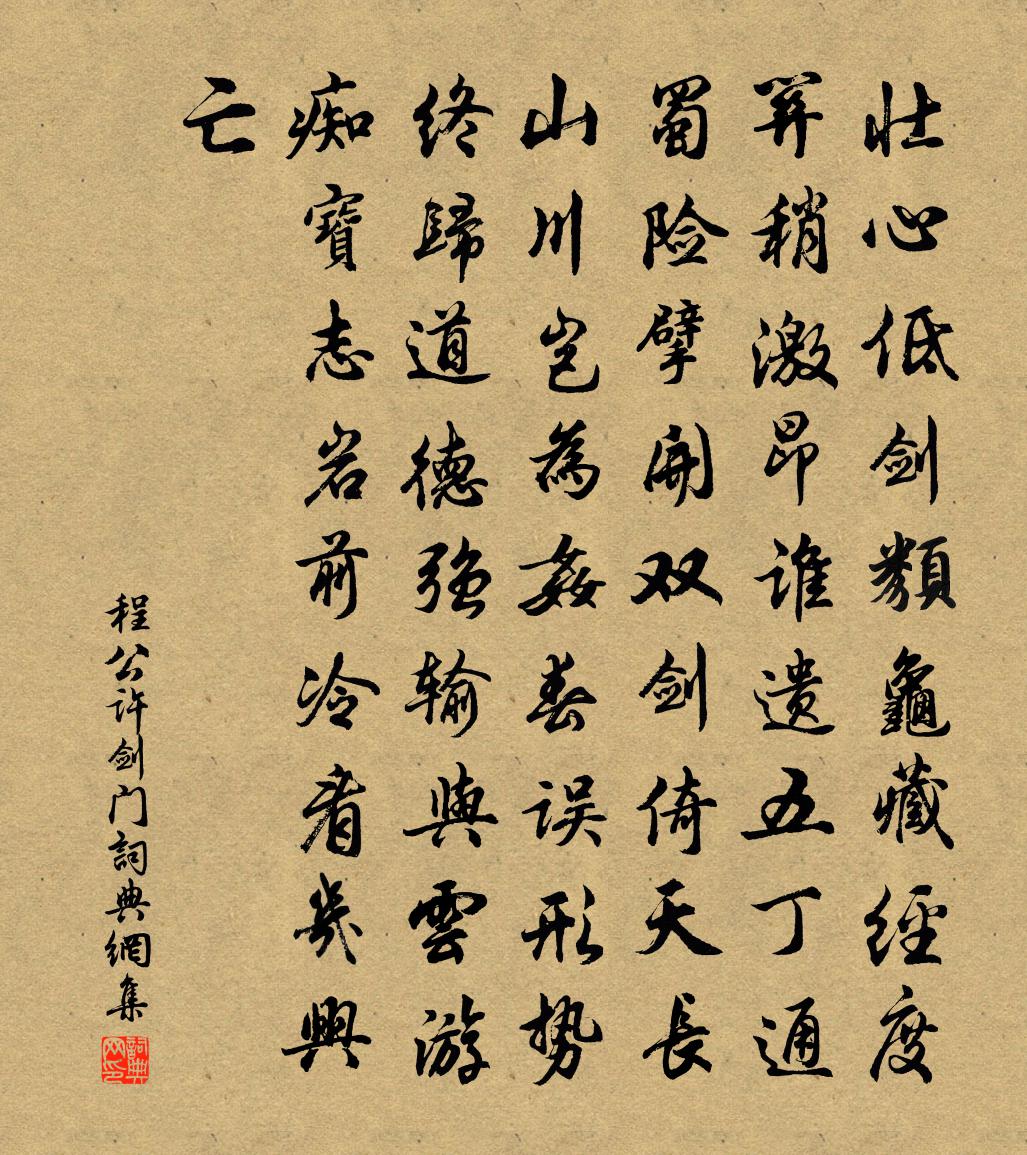 壮心低剑類龜藏經度
笄稍激昂谁遗五丁通
蜀险擘開双剑倚天長
山川岂為姦春误形势
终歸道德强输與雲游
痴寶志岩前冷看幾興
亡
程公许剑门詞典網集
詞典网印